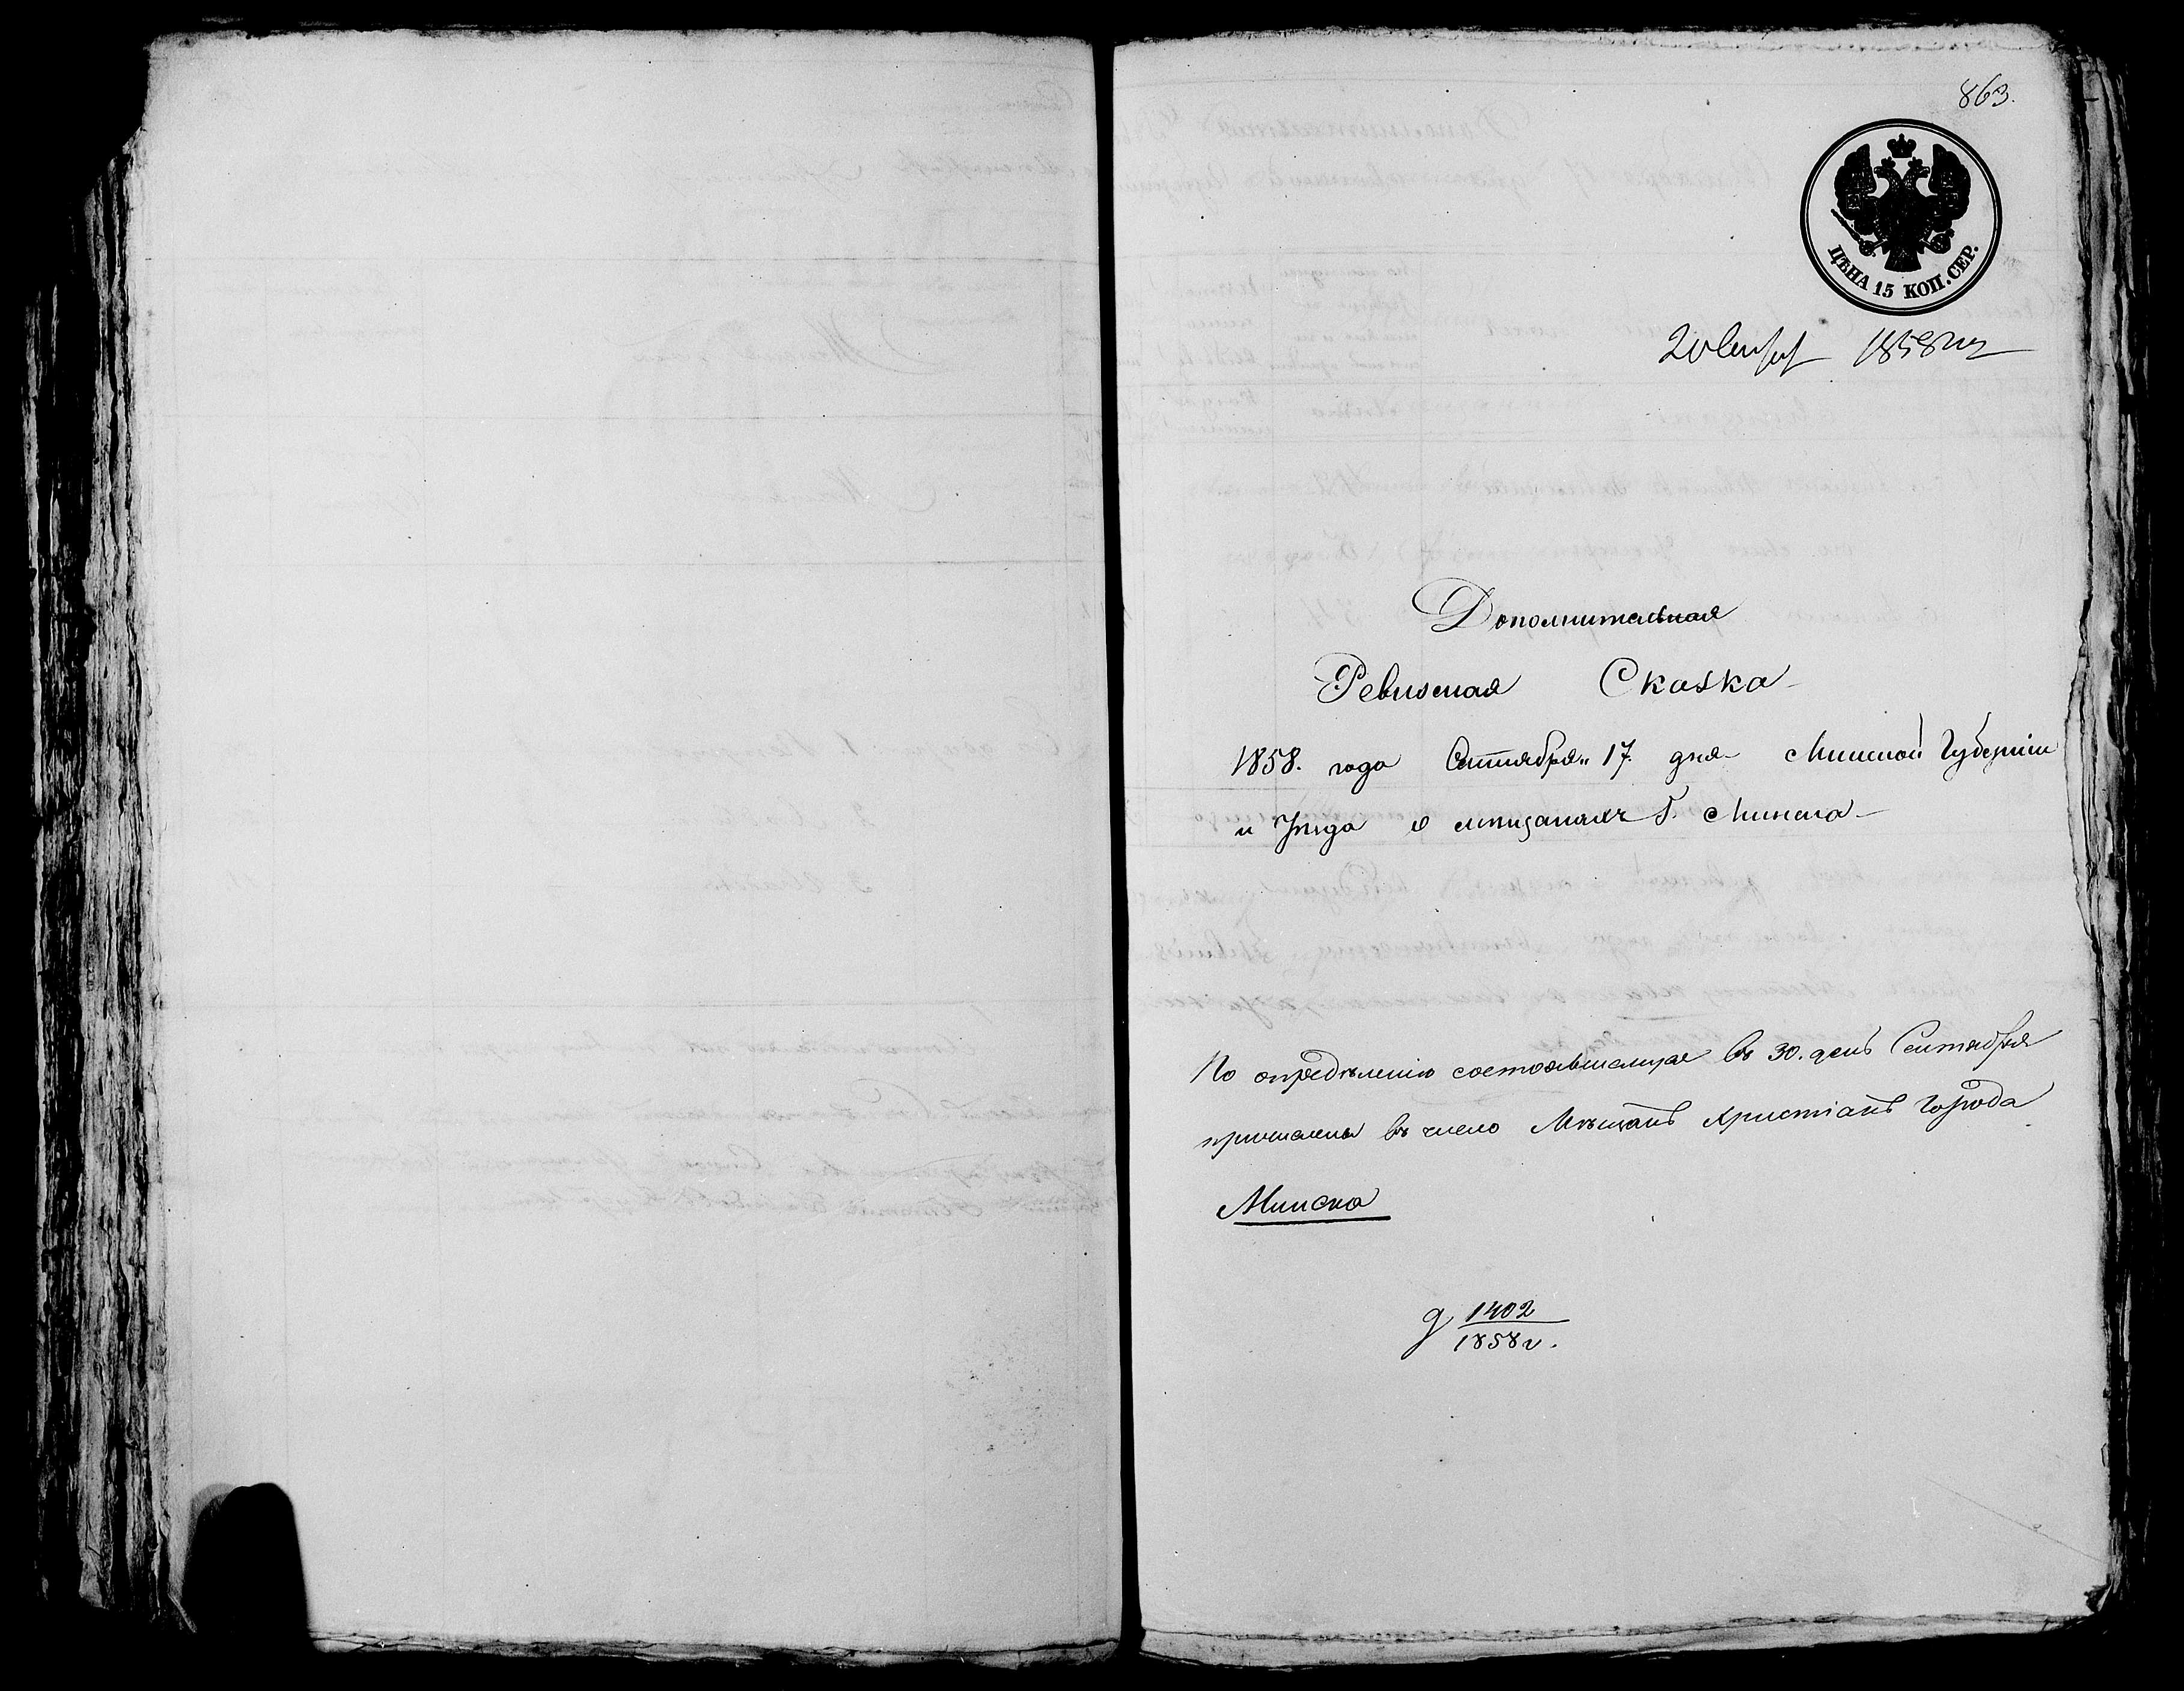 863.
ЦѢНА 15 КОП. СЕР.
20 Сент 1858 г
Дополнительная
Ревизская Сказка
1858. года Сентября 17. дня Минской Губерніи
и Уѣзда о мѣщанахъ Г. Минска
По опредѣленію состоявшемуся въ 30. день Сентября
причислены въ число Мѣщанъ Христіанъ Города
Минска
д 1402
1858 г.